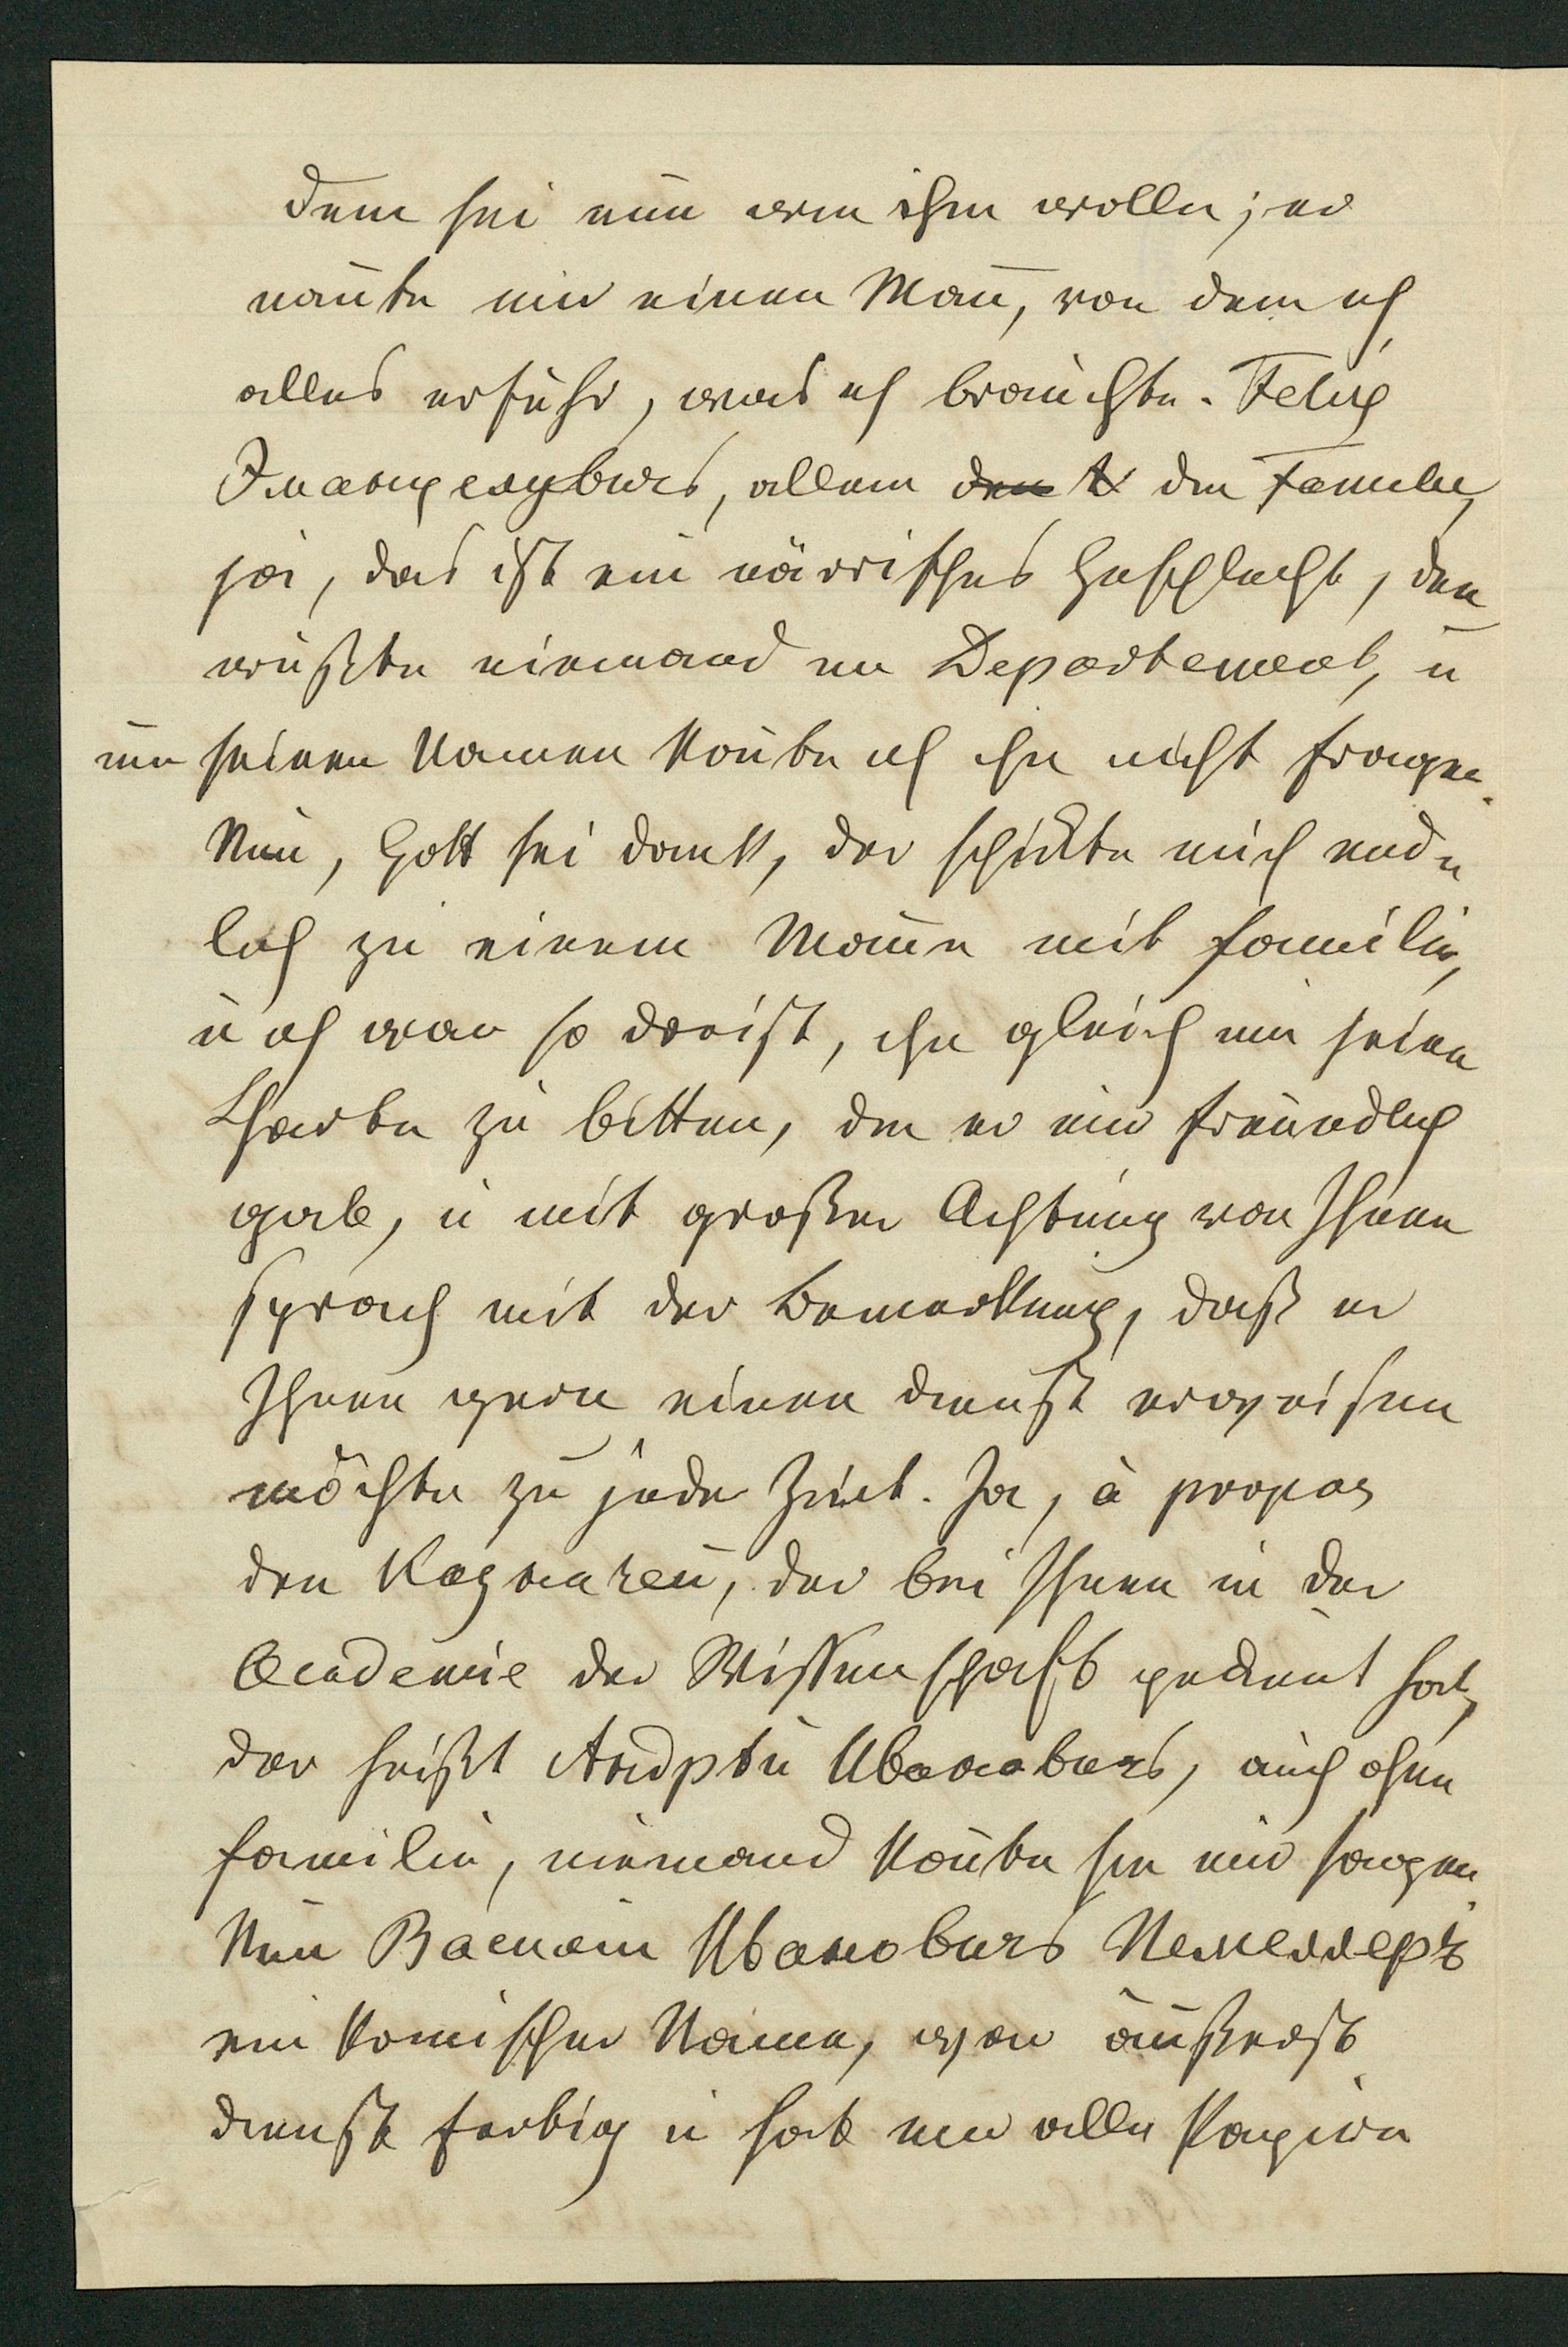 dem sei nun wem ihm wolle; er
nan̄te mir einen Man̄, von dem ich
alles erfuhr, was ich brauchte. Felix
Эмануеловичъ, allein den die Familie,
ja, das ist ein närrisches Geschlecht, den
wußte niemand im Departement, u
um seinen Namen kon̄te ich ihn nicht fragen.
Nun, Gott sei dank, der schickte mich end¬
lich zu einem Manne mit Familie,
u ich war so dreist, ihn gleich um seine
Charte zu bitten, die er mir freundlich
gab, u mit großer Achtung von Ihnen
sprach mit der Bemerkung, daß er
Ihnen gern einen dienst erweisen
möchte zu jeder Zeit. Ja, à propos
den Казначей, der bei Ihnen in der
Academie der Wissenschaft gedient hat,
der heißt Андрей Ивановичъ, auch ohne
familie, niemand kon̄te sie mir sagen
Nun Василий Ивановичъ
ein komischer Name, war äußerst
dienstfertig u hat mir alle Papiere